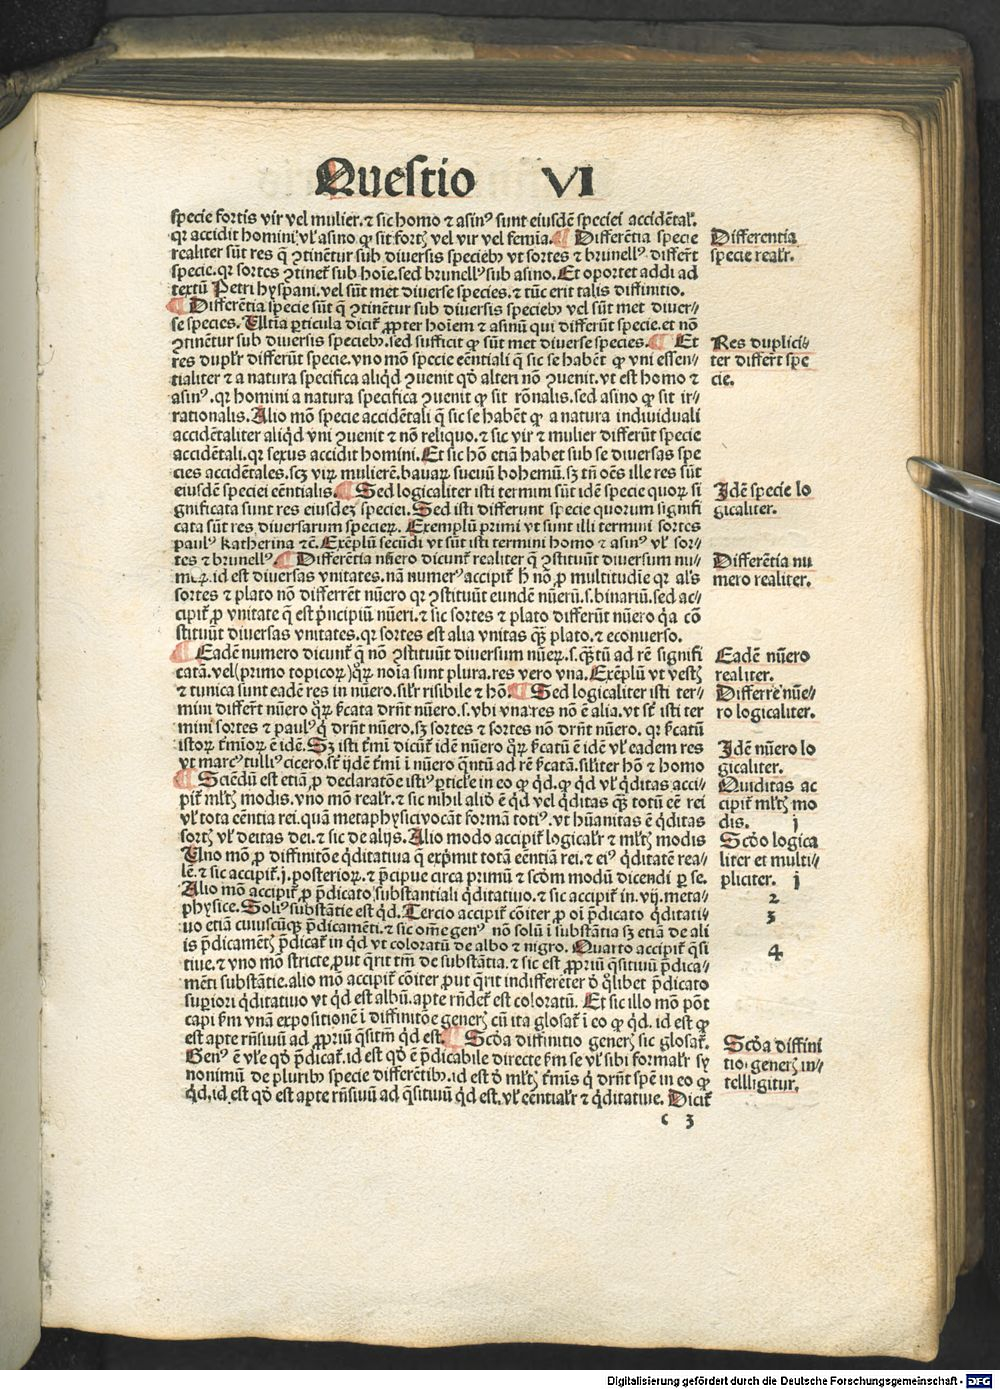 Questio VI
specie fortis vir vel mulier. ⁊ sic homo ⁊ asinꝰ sunt eiusdē speciei accidētal'.
qꝛ accidit homini, vl' asino ꝙ sit fortꝭ vel vir vel femīa. ¶ Differētia specie
realiter sūt res q̄ ꝯtinētur sub diuersis speciebꝰ vt sortes ⁊ brunellꝰ differt̄
specie. qꝛ sortes ꝯtinet̄ sub hoīe. sed brunellꝰ sub asino. Et oportet addi ad
textū Petri hyspani. vel sūt met diuerse species. ⁊ tūc erit talis diffinitio.
¶ Differētia specie sūt q̄ ꝯtinētur sub diuersis speciebꝰ vel sūt met diuer⸗
se species. Vltīa ꝑticula dicit̄ ꝓpter hoīem ⁊ asinū qui differūt specie. et nō
ꝯtinētur sub diuersis speciebꝰ. sed sufficit ꝙ sūt met diuerse species. ¶ Et
res duplr̄ differūt specie. vno mō specie eēntiali q̄ sic se habēt ꝙ vni essen⸗
tialiter ⁊ a natura specifica aliqd̄ ꝯuenit qd̄ alteri nō ꝯuenit. vt est homo ⁊
asinꝰ. qꝛ homini a natura specifica ꝯuenit ꝙ sit rōnalis. sed asino ꝙ sit ir⸗
rationalis. Alio mō specie accidētali q̄ sic se habēt ꝙ a natura indiuiduali
accidētaliter aliqd̄ vni ꝯuenit ⁊ nō reliquo. ⁊ sic vir ⁊ mulier differūt specie
accidētali. qꝛ sexus accidit homini. Et sic hō etiā habet sub se diuersas spe
cies accidētales. scꝫ virꝝ mulierē. bauarꝝ sueuū bohemū. sꝫ tn̄ oēs ille res sūt
eiusdē speciei eēntialis. ¶ Sed logicaliter isti termini sūt idē specie quorꝝ si
gnificata sunt res eiusdeꝫ speciei. Sed isti differunt specie quorum signifi
cata sūt res diuersarum specierꝝ. Exemplū primi vt sunt illi termini sortes
paulꝰ katherina ⁊c̄. Exēplū secūdi vt sūt isti termini homo ⁊ asinꝰ vl' sor⸗
tes ⁊ brunellꝰ. ¶ Differētia nūero dicunt̄ realiter q̄ ꝯstituūt diuersum nu⸗
meꝝ. id est diuersas vnitates. nā numerꝰ accipit̄ h̄ nō ꝓ multitudīe qꝛ al's
sortes ⁊ plato nō differrēt nūero qꝛ ꝯstituūt eundē nūerū. s. binariū. sed ac⸗
cipit̄ ꝓ vnitate q̄ est pͥncipiū nūeri. ⁊ sic sortes ⁊ plato differūt nūero qͥa cō
stituūt diuersas vnitates. qꝛ sortes est alia vnitas qͣꝫ plato. ⁊ econuerso.
¶ Eadē numero dicunt̄ q̄ nō ꝯstituūt diuersum nūeꝝ. s. qͣꝫtū ad rē signifi
catā. vel (primo topicoꝝ) qͦꝝ noīa sunt plura. res vero vna. Exēplū vt vestꝭ
⁊ tunica sunt eadē res in nūero. silr̄ risibile ⁊ hō. ¶ Sed logicaliter isti ter⸗
mini differt̄ nūero qͦꝝ sͥcata drn̄t nūero. s. vbi vna res nō ē alia. vt st̄ isti ter
mini sortes ⁊ paulꝰ qͥ drn̄t nūero. sꝫ sortes ⁊ sortes nō drn̄t nūero. qꝛ sͥcatū
istoꝝ t̄mīoꝝ ē idē. Sꝫ isti t̄mī dicūt̄ idē nūero qͦꝝ sͥcatū ē idē vl' eadem res
vt marcꝰ tulliꝰ cicero. st̄ ijdē t̄mī ī nūero qͣntū ad rē sͥcatā. sil'iter hō ⁊ homo
¶ Sciēdū est etiā ꝓ declaratōe istiꝰ ꝑticl'e in eo ꝙ qͥd. ꝙ qͥd vl' qͥditas acci⸗
pit̄ ml'tꝭ modis. vno mō realr̄. ⁊ sic nihil aliđ ē qͥd vel qͥditas qͣꝫ totū eē rei
vl' tota eēntia rei. quā metaphysici vocāt formā totiꝰ. vt hūanitas ē qͥditas
sortꝭ vl' deitas dei. ⁊ sic de alijs. Alio modo accipit̄ logicalr̄ ⁊ ml'tꝭ modis
Vno mō ꝓ diffinitōe qͥditatiua q̄ expͥmit totā eēntiā rei. ⁊ eiꝰ qͥditatē rea⸗
lē. ⁊ sic accipit̄. j. posterioꝝ. ⁊ p̄cipue circa primū ⁊ scd̄m modū dicendi ꝑ se.
Alio mō accipit̄ ꝓ p̄dicato substantiali qͥditatiuo. ⁊ sic accipit̄ in. vij. meta⸗
physice. Soliꝰ substātie est qͥd. Tercio accipit̄ cōiter ꝓ oī p̄dicato qͥditati⸗
uo etiā cuiuscūqꝫ p̄dicamēti. ⁊ sic om̄e genꝰ nō solū ī substātia sꝫ etiā de ali
is p̄dicamētꝭ p̄dicat̄ in qͥd vt coloratū de albo ⁊ nigro. Quarto accipit̄ qͥsi
tiue. ⁊ vno mō stricte, ꝓut qͥrit tm̄ de substātia. ⁊ sic est ꝓpriū qͥsitiuū p̄dica⸗
mēti substātie. alio mō accipit̄ cōiter ꝓut qͥrit indifferēter đ qͦlibet p̄dicato
suꝑiori qͥditatiuo vt qͥd est albū. aꝑte rn̄det̄ est coloratū. Et sic illo mō pōt
capi s̄m vnā expositionē ī diffinitōe generꝭ cū ita glosat̄ ī eo ꝙ qͥd. id est ꝙ
est aꝑte rn̄siuū ad ꝓpriū qͥsitm̄ qͥd est. ¶ Scđa diffinitio generꝭ sic glosat̄.
Genꝰ ē vl'e qd̄ p̄dicat̄. id est qd̄ ē p̄dicabile directe s̄m se vl' sibi formalr̄ sy
nonimū de pluribꝰ specie differētibꝰ. id est đ ml'tꝭ t̄mis q̄ drn̄t spē̄ in eo ꝙ
qͥd. id est qd̄ est aꝑte rn̄siuū ad qͥsitiuū qͥd est. vl' eēntialr̄ ⁊ qͥditatiue. Dicit̄
c 3
Differentia
specie realr̄.
Res duplici⸗
ter differt̄ spe
cie.
Idē specie lo
gicaliter.
Differētia nu
mero realiter.
Eadē nūero
realiter.
Differrē nūe⸗
ro logicaliter.
Idē nūero lo
gicaliter.
Quiditas ac
cipit̄ ml'tꝭ mo
dis. j
Scđo logica
liter et multi⸗
pliciter. j
2
3
4
Scđa diffini
tio generꝭ in⸗
telligitur.
Digitalisierung gefördert durch die Deutsche Forschungsgemeinschaft - DFG